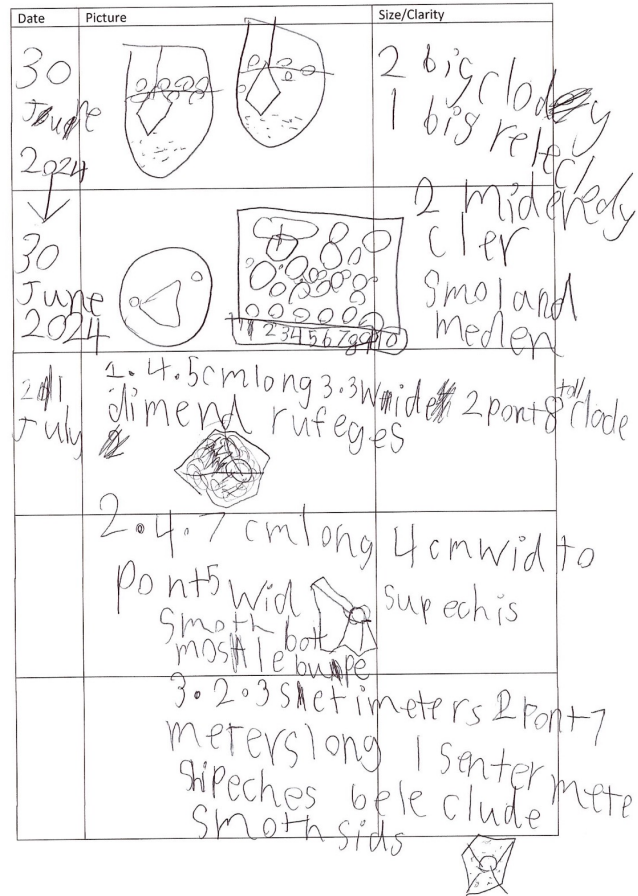 Date Picture Size/Clarity
30
June
2024
2 big clody
1 big relecl
30
June
2024
1 2 3 4 5 6 7 8 9 10
2 mideredy
cler
Smol and
meden
July
1. 4.5cm long 3.3 Wide 2 pont 8 tall clode
dimend rufeges
2. 4.7 cm long 4 cm wid to
pont 5 wid
smoth bott
mostle bumpe
supechis
3. 2.3 setimeters 2 pont 7
meters long 1 senter mete
shipeches bele clude
smoth sids